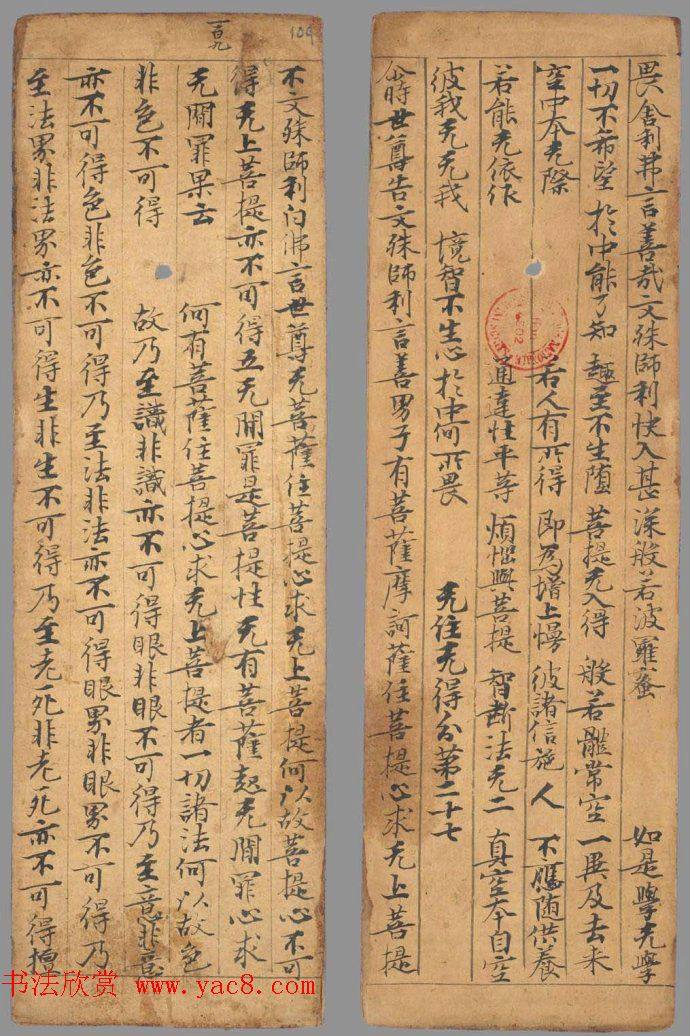 畏舍利弗言善哉文殊師利快入甚深般若波羅蜜 如是學无學
一切不希望 於中能了知 趣至不生墮 菩提无入得 般若體常空 一異及去来
空中本无際 若人有所得 即為增上慢 彼諸信施人 不應随供養
若能无依住 通達性平等 煩惱與菩提 智斷法无二 真空本自空
彼我无无我 境智不生心 於中何所畏 无住无得分第二十七
尒時世尊告文殊師利言善男子有菩薩摩訶薩住菩提心求无上菩提
百九
109
不文殊師利白佛言世尊无菩薩住菩提心求无上菩提何以故菩提心不可
得无上菩提亦不可得五无間罪是菩提性无有菩薩起无間罪心求
无間罪果云何有菩薩住菩提心求无上菩提者一切諸法何以故色
非色不可得故乃至識非識亦不可得眼非眼不可得乃至意非意
亦不可得色非色不可得乃至法非法亦不可得眼界非眼界不可得乃
至法界非法界亦不可得生非生不可得乃至老死非老死亦不可得檀
书法欣赏 www.yac8.com